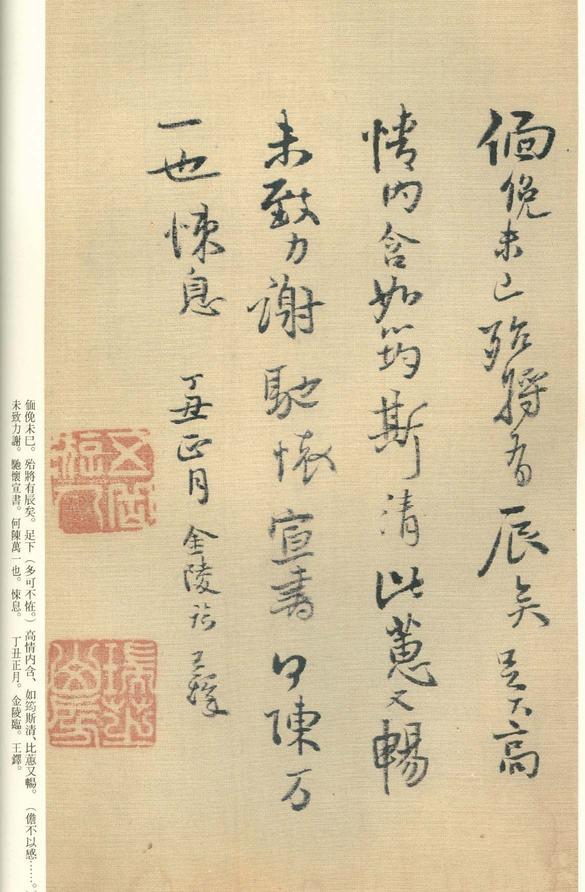 偭俛未已殆將有辰矣足下高
情内含如筠斯清比蕙又暢
未致力謝馳懷宣書何陳万
一也悚息 丁丑正月金陵臨王鐸
偭俛未已。殆將有辰矣。足下（多可不恠。）高情内含、如筠斯清、比蕙又暢。（儋不以感……。）
未致力謝。馳懷宣書。何陳萬一也。悚息。 丁丑正月。金陵臨。王鐸。